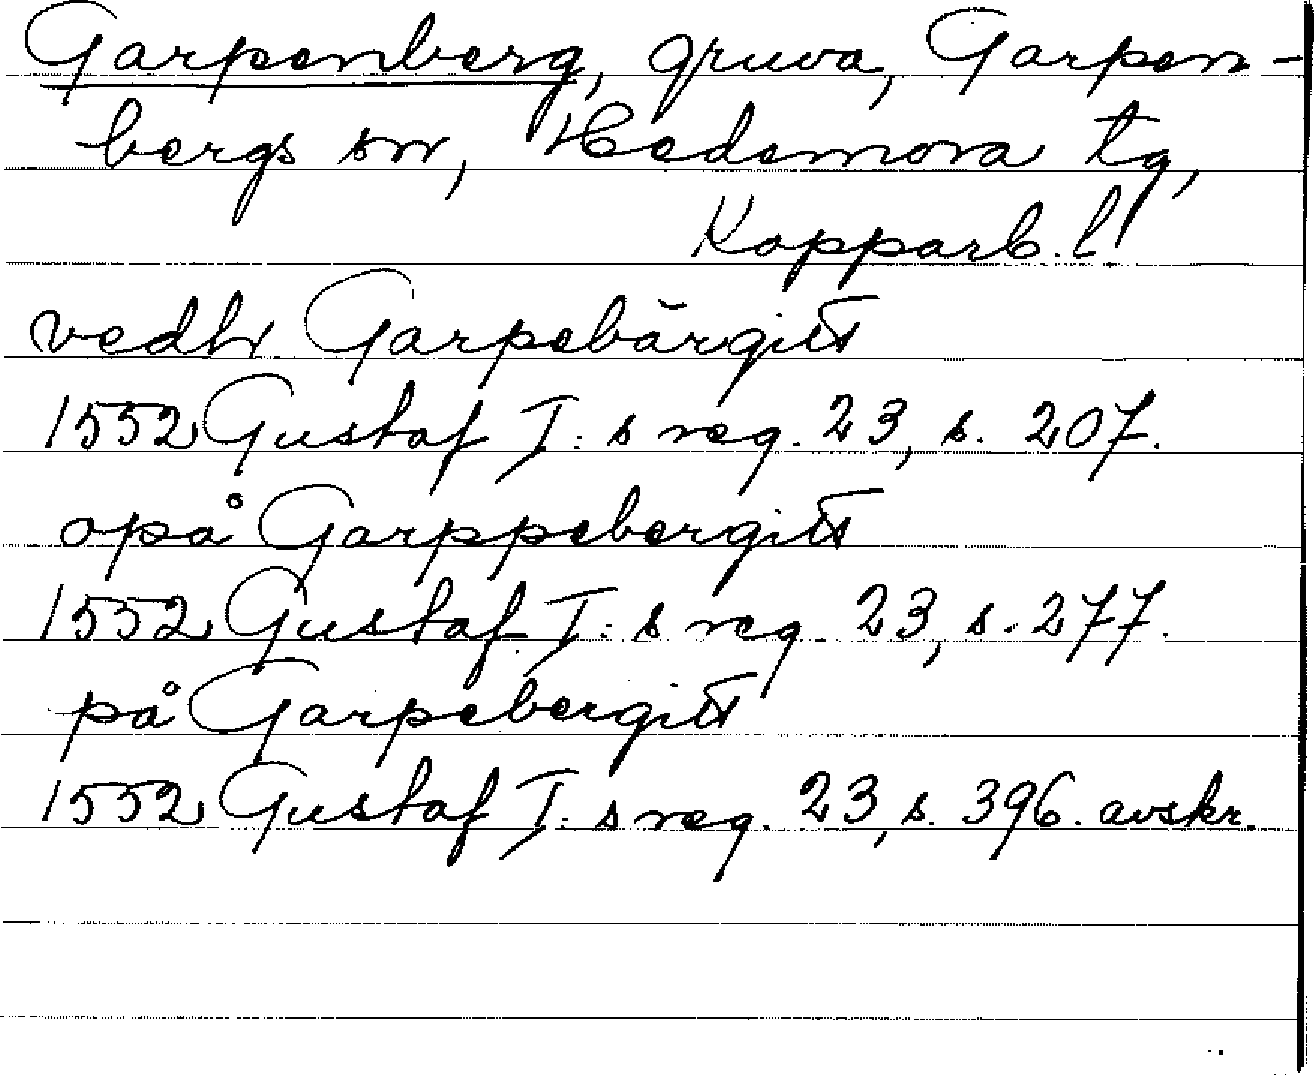 Garpenberg, gruva, Garpen-
bergs sn, Hedemora tg,
Kopparb. l.
vedh Garpebärgitt
1552 Gustaf I:s reg. 23, s. 207.
opå Garppebergitt
1552 Gustaf I:s reg. 23, s. 277.
på Garpebergitt
1552 Gustaf I:s reg. 23, s. 396. avskr.